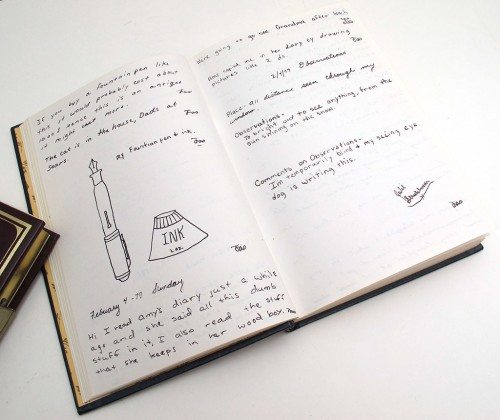 If you buy a fountain pen like
this it would probably cost about
100$ & since this is an antique
it might cost more.
The cat is in the house, Dad's at
Sears.
My Fountian pen & ink.
INK
2 oz.
February 4-79 Sunday
Hi I read amy's diary just a while
ago and she said all this dumb
stuff in it, I also read the stuff
that she keeps in her wood box.
We're going to go see Grandma after lunch
Amy copied me in her diary by drawing
pictures like I do.
Observations
Place: all distance seen through my
window.
Observations:
To bright out to see anything, from the
sun shining on the snow.
Comments on Observations-
I'm temporarily blind & my seeing eye
dog is writing this.